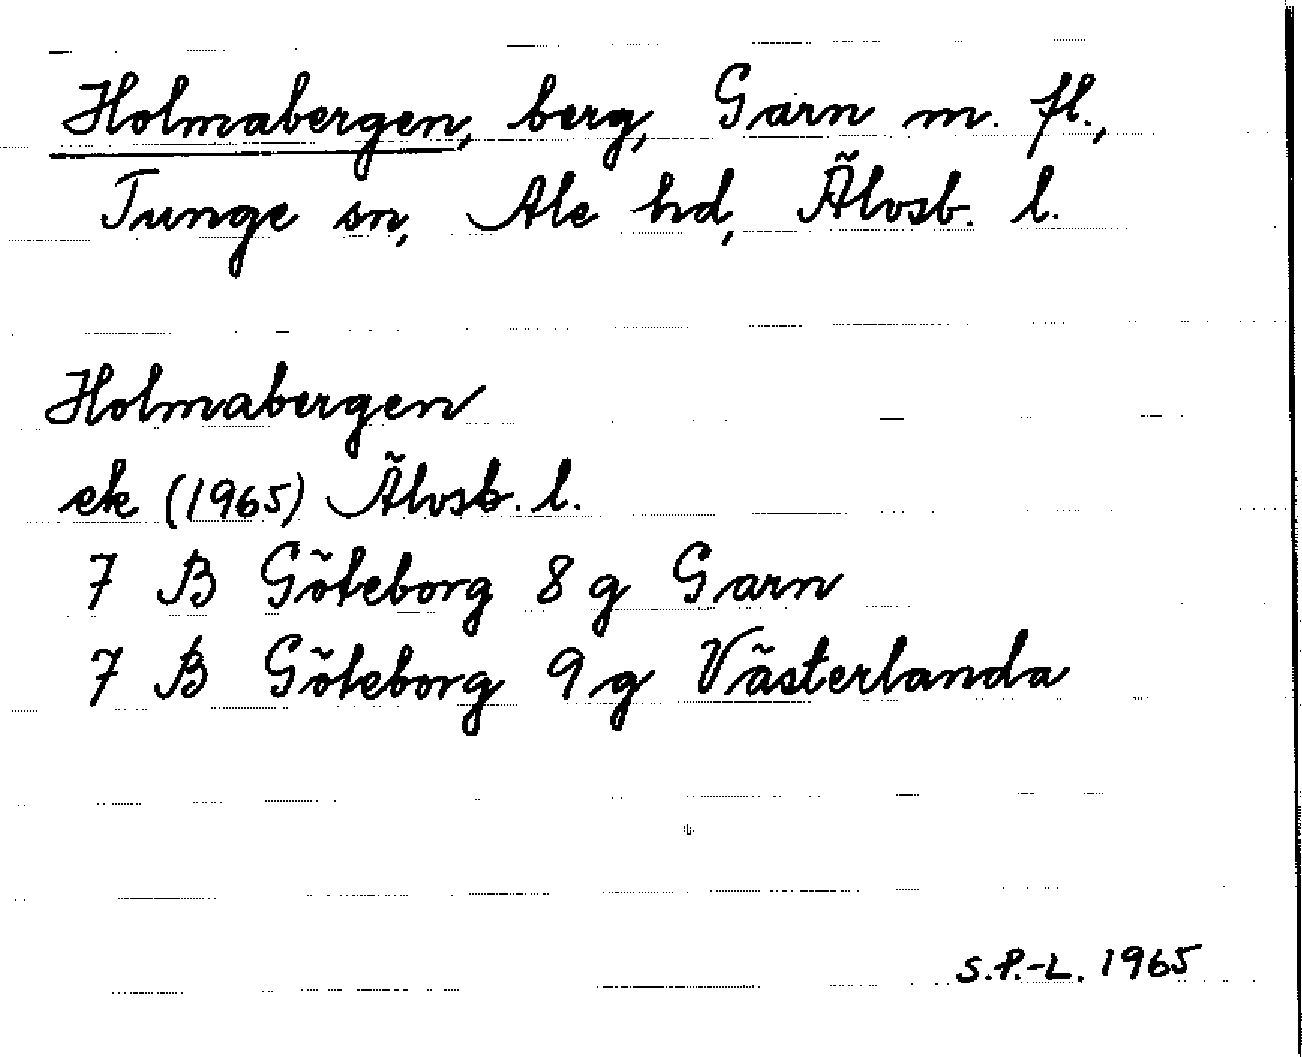 Holmabergen, berg, Garn m. fl.,
Tunge sn, Ale hd, Älvsb. l.
Holmabergen
ek (1965) Älvsb. l.
7 B Göteborg 8 g Garn
7 B Göteborg 9 g Västerlanda
S.P.-L. 1965